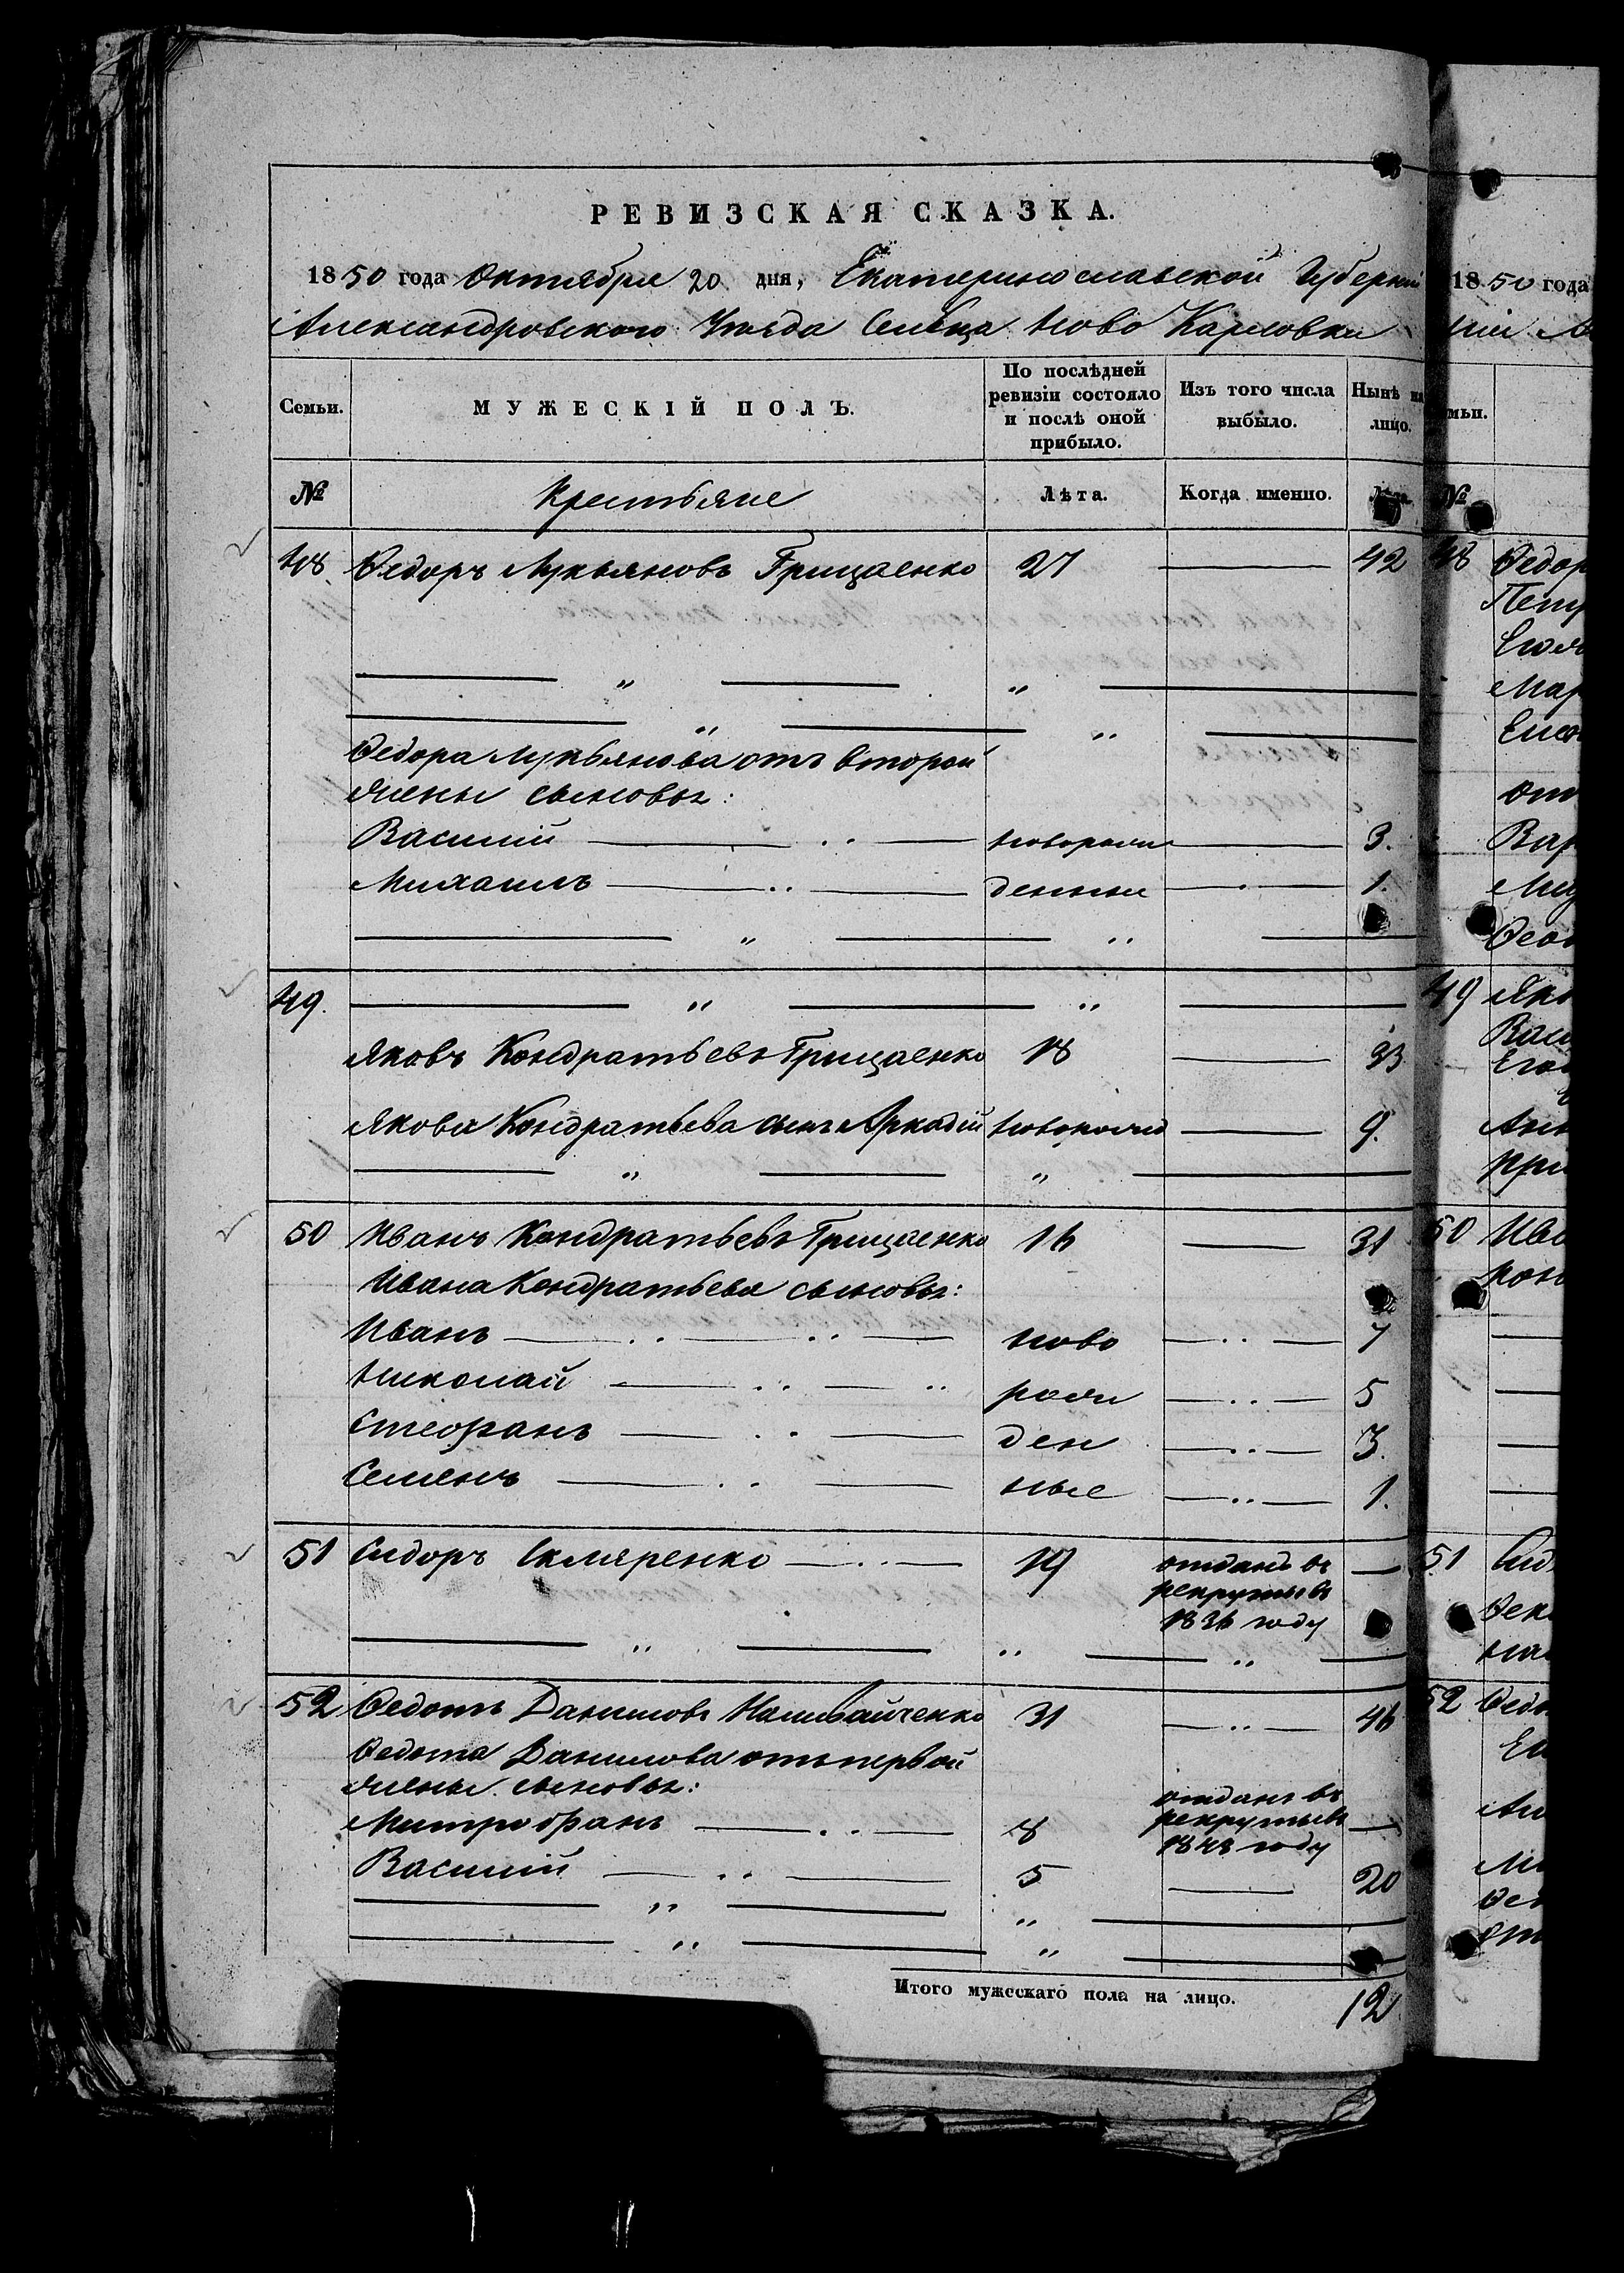 РЕВИЗСКАЯ СКАЗКА.
1850 года Октября 20 дня, Екатеринославской Губерніи
Александровского Уѣзда Сельца Ново Карловки
Семьи.
МУЖЕСКІЙ ПОЛЪ.
По послѣдней ревизіи состояло и послѣ оной прибыло.
Изъ того числа выбыло.
Нынѣ на лицо.
№
Крестьяне
Лѣта.
Когда именно.
Лѣта.
48 Федоръ Лукьяновъ Грицаенко 27 — 42
— „ — „ —
— „ — „ —
Федора Лукьянова отъ второй
жены сыновья:
Василий — новорож — 3.
Михаилъ — денные — 1.
— „ — „ —
49. — „ — „ —
Яковъ Кондратьевъ Грицаенко 18 — 33
Якова Кондратьева сынъ Аркадій новорожд — 9.
— „ — „ —
50 Иванъ Кондратьевъ Грицаенко 16 — 31
Ивана Кондратьева сыновья:
Иванъ — ново — 7
Николай — рож — 5
Стефанъ — ден — 3.
Семенъ — ные — 1.
51 Сидоръ Скляренко — 19 отданъ въ
рекруты въ
1836 году —
— „ — „ — „ —
52 Федотъ Даниловъ Наливайченко 31 — 46
Федота Данилова отъ первой
жены сыновья:
Митрофанъ — 8 отданъ въ
рекруты въ
1848 году —
Василий — 5 — 20
— „ — „ —
— „ — „ —
Итого мужескаго пола на лицо. 12
1850 года
ніи
№
48 Федор
Мар
Вар
49
50
51
52